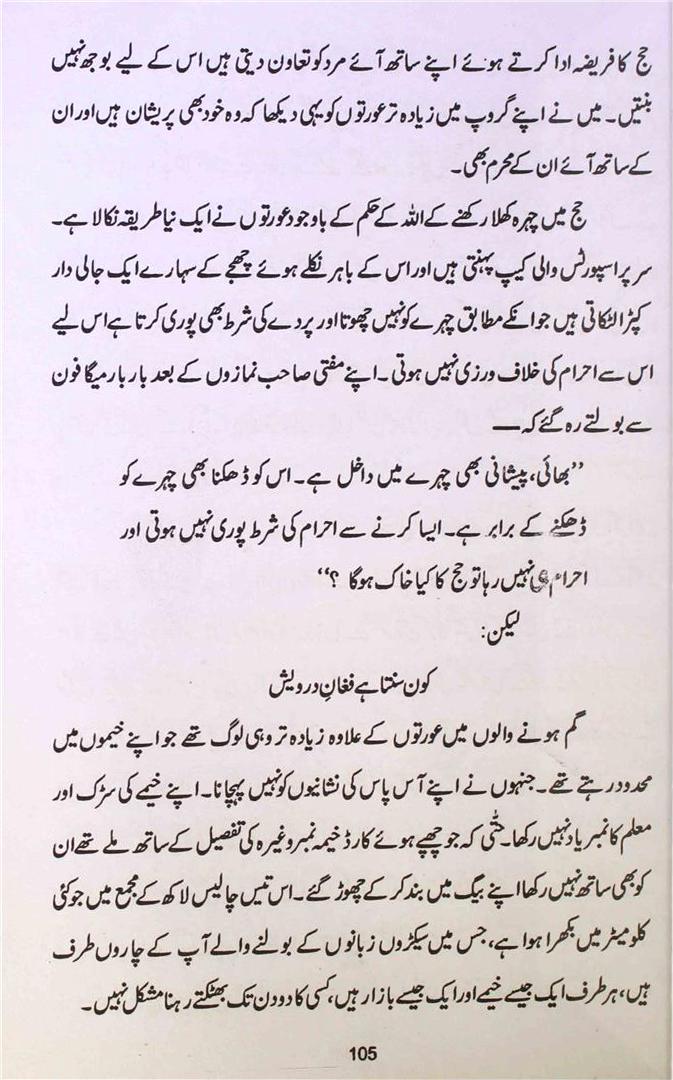 حج کا فریضہ ادا کرتے ہوئے اپنے ساتھ آئے مرد کو تعاون دیتی ہیں اس کے لیے بوجھ نہیں
بنتیں۔ میں نے اپنے گروپ میں زیادہ تر عورتوں کو یہی دیکھا کہ وہ خود بھی پریشان ہیں اور ان
کے ساتھ آئے ان کے محرم بھی۔
حج میں چہرہ کھلا رکھنے کے اللہ کے حکم کے باوجود عورتوں نے ایک نیا طریقہ نکالا ہے۔
سر پر اسپورٹس والی کیپ پہنتی ہیں اور اس کے باہر نکلے ہوئے چھجے کے سہارے ایک جالی دار
کپڑا لٹکاتی ہیں جو انکے مطابق چہرے کو نہیں چھوتا اور پردے کی شرط بھی پوری کرتا ہے اس لیے
اس سے احرام کی خلاف ورزی نہیں ہوتی۔ اپنے مفتی صاحب نمازوں کے بعد بار بار میگا فون
سے بولتے رہ گئے کہ——
”بھائی، پیشانی بھی چہرے میں داخل ہے۔ اس کو ڈھکنا بھی چہرے کو
ڈھکنے کے برابر ہے۔ ایسا کرنے سے احرام کی شرط پوری نہیں ہوتی اور
احرام ہی نہیں رہا تو حج کا کیا خاک ہوگا ؟“
لیکن:
کون سنتا ہے فغانِ درویش
گم ہونے والوں میں عورتوں کے علاوہ زیادہ تر وہی لوگ تھے جو اپنے خیموں میں
محدود رہتے تھے۔ جنہوں نے اپنے آس پاس کی نشانیوں کو نہیں پہچانا۔ اپنے خیمے کی سڑک اور
معلم کا نمبر یاد نہیں رکھا۔ حتّٰی کہ جو چھپے ہوئے کارڈ خیمہ نمبر وغیرہ کی تفصیل کے ساتھ ملے تھے ان
کو بھی ساتھ نہیں رکھا اپنے بیگ میں بند کر کے چھوڑ گئے۔ اس تیس چالیس لاکھ کے مجمع میں جو کئی
کلومیٹر میں بکھرا ہوا ہے، جس میں سیکڑوں زبانوں کے بولنے والے آپ کے چاروں طرف
ہیں، ہر طرف ایک جیسے خیمے اور ایک جیسے بازار ہیں، کسی کا دو دن تک بھٹکتے رہنا مشکل نہیں۔
105